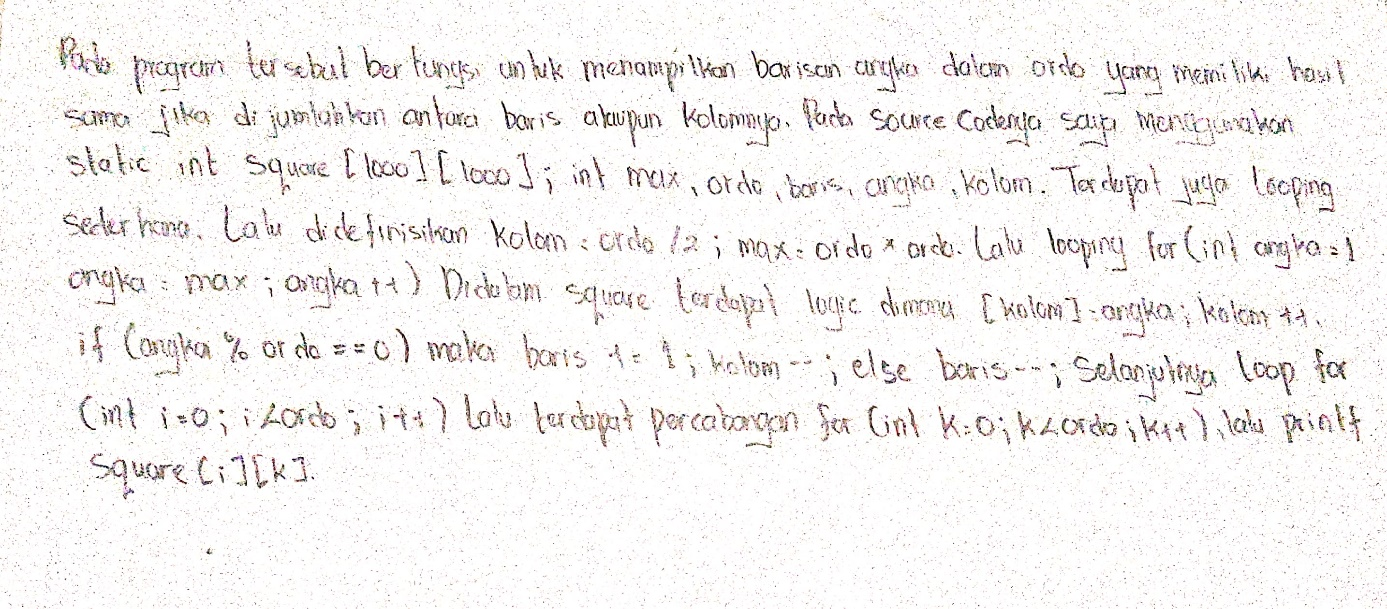 Pada program tersebut berfungsi untuk menampilkan barisan angka dalam ordo yang memiliki hasil
sama jika dijumlahkan antara baris ataupun kolomnya. Pada Source Codenya saya menggunakan
static int square [1000][1000]; int max, ordo, baris, angka, kolom. Terdapat juga looping
sederhana. Lalu didefinisikan kolom = ordo /2 ; max = ordo * ordo. Lalu looping for (int angka = 1
angka = max ; angka ++) Didalam square terdapat logic dimana [kolom] = angka; kolom ++.
if (angka % ordo == 0) maka baris += 1 ; kolom -- ; else baris-- ; Selanjutnya loop for
(int i=0 ; i<ordo ; i++) lalu terdapat percabangan for (int k=0; k<ordo; k++), lalu printf
Square [i][k].